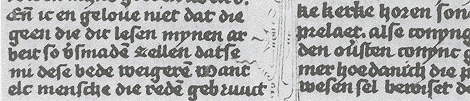 En ic en geloue niet dat die
geen die dit lesen mynen ar
beit so v̄smadē zellen datse
mi dese bede weigerē want
elc mensche die redē gebruuct
ke kerke horen som
prelaet. alse conyng
den ousten conync g
mer hoedanich die p
wesen sel bewiset d